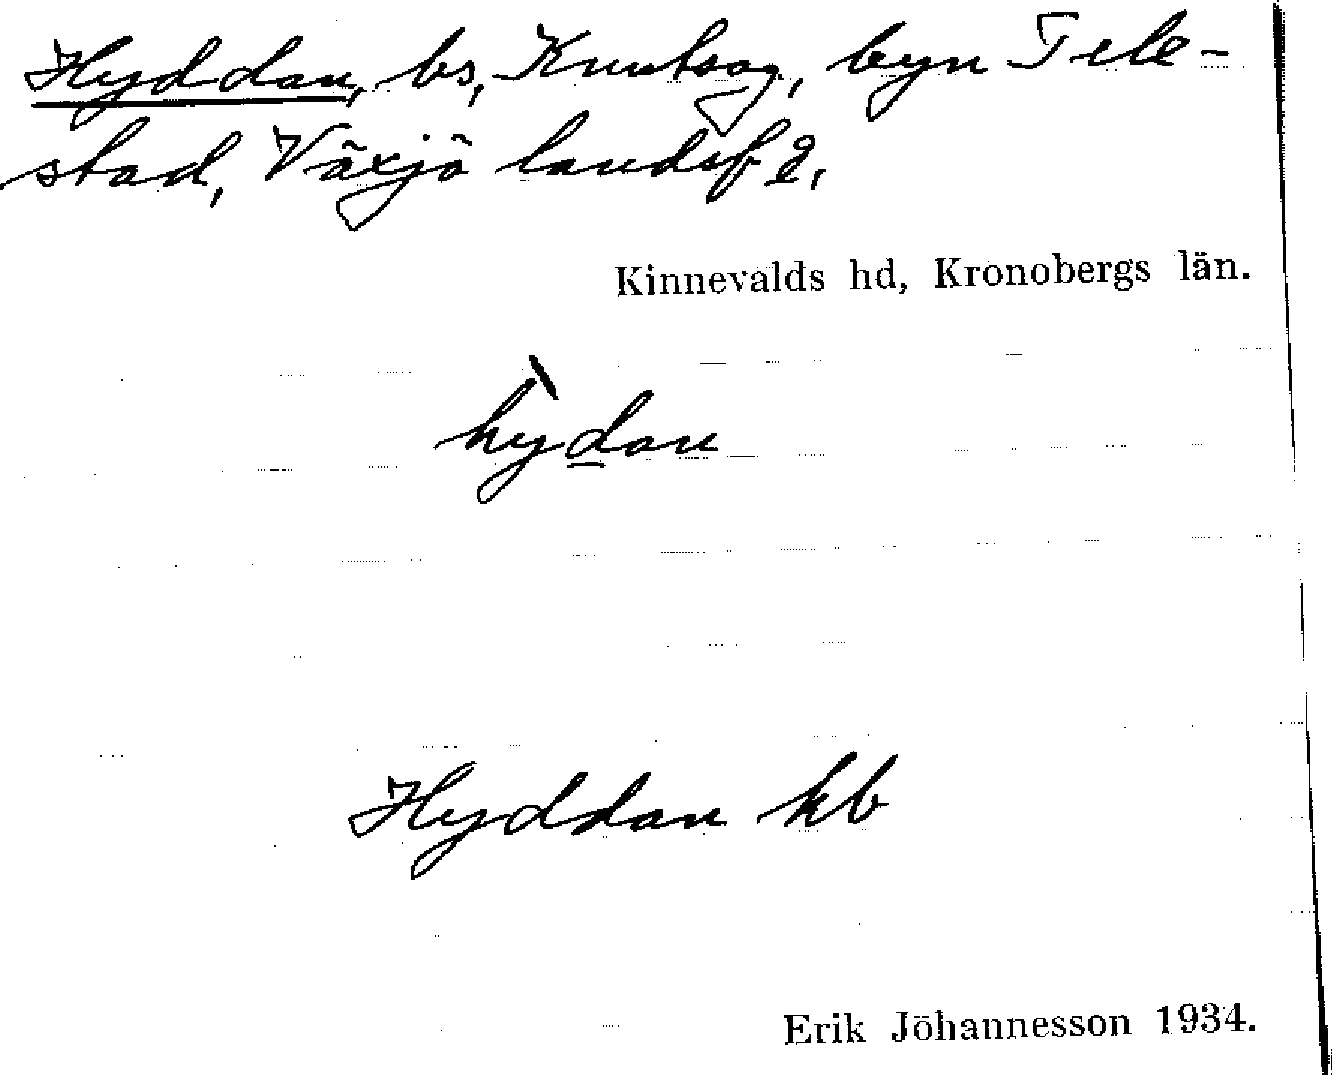 Hyddan, bs, Knutsag, byn Tele-
stad, Växjö landsf g,
Kinnevalds hd, Kronobergs län.
hỳdan
Hyddan kb
Erik Jöhannesson 1934.